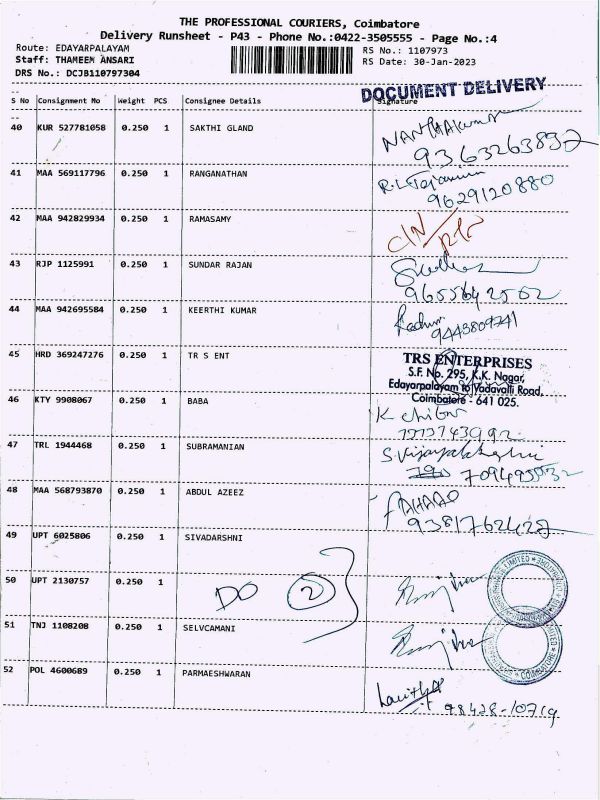 THE PROFESSIONAL COURIERS, Coimbatore
Delivery Runsheet - P43 - Phone No.:0422-3505555 - Page No.:4
Route: EDAYARPALAYAM
RS No.: 1107973
Staff: THAMEEM ANSARI
RS Date: 30-Jan-2023
DRS No.: DCJB110797304
DOCUMENT DELIVERY
S No Consignment No Weight PCS Consignee Details Signature
40 KUR 527781058 0.250 1 SAKTHI GLAND
9363263892
41 MAA 569117796 0.250 1 RANGANATHAN
9629120880
42 MAA 942829934 0.250 1 RAMASAMY
43 RJP 1125991 0.250 1 SUNDAR RAJAN
44 MAA 942695584 0.250 1 KEERTHI KUMAR
9443809741
45 HRD 369247276 0.250 1 TR S ENT
TRS ENTERPRISES
S.F. No. 295, K.K. Nagar,
Edayarpalayam to Vadavalli Road,
Coimbatore - 641 025.
46 KTY 9908067 0.250 1 BABA
47 TRL 1944468 0.250 1 SUBRAMANIAN
48 MAA 568793870 0.250 1 ABDUL AZEEZ
FAHAAD
9381762428
49 UPT 6025806 0.250 1 SIVADARSHNI
50 UPT 2130757 0.250 1
DO 2
51 TNJ 1108208 0.250 1 SELVCAMANI
52 POL 4600689 0.250 1 PARMAESHWARAN
98428-10719